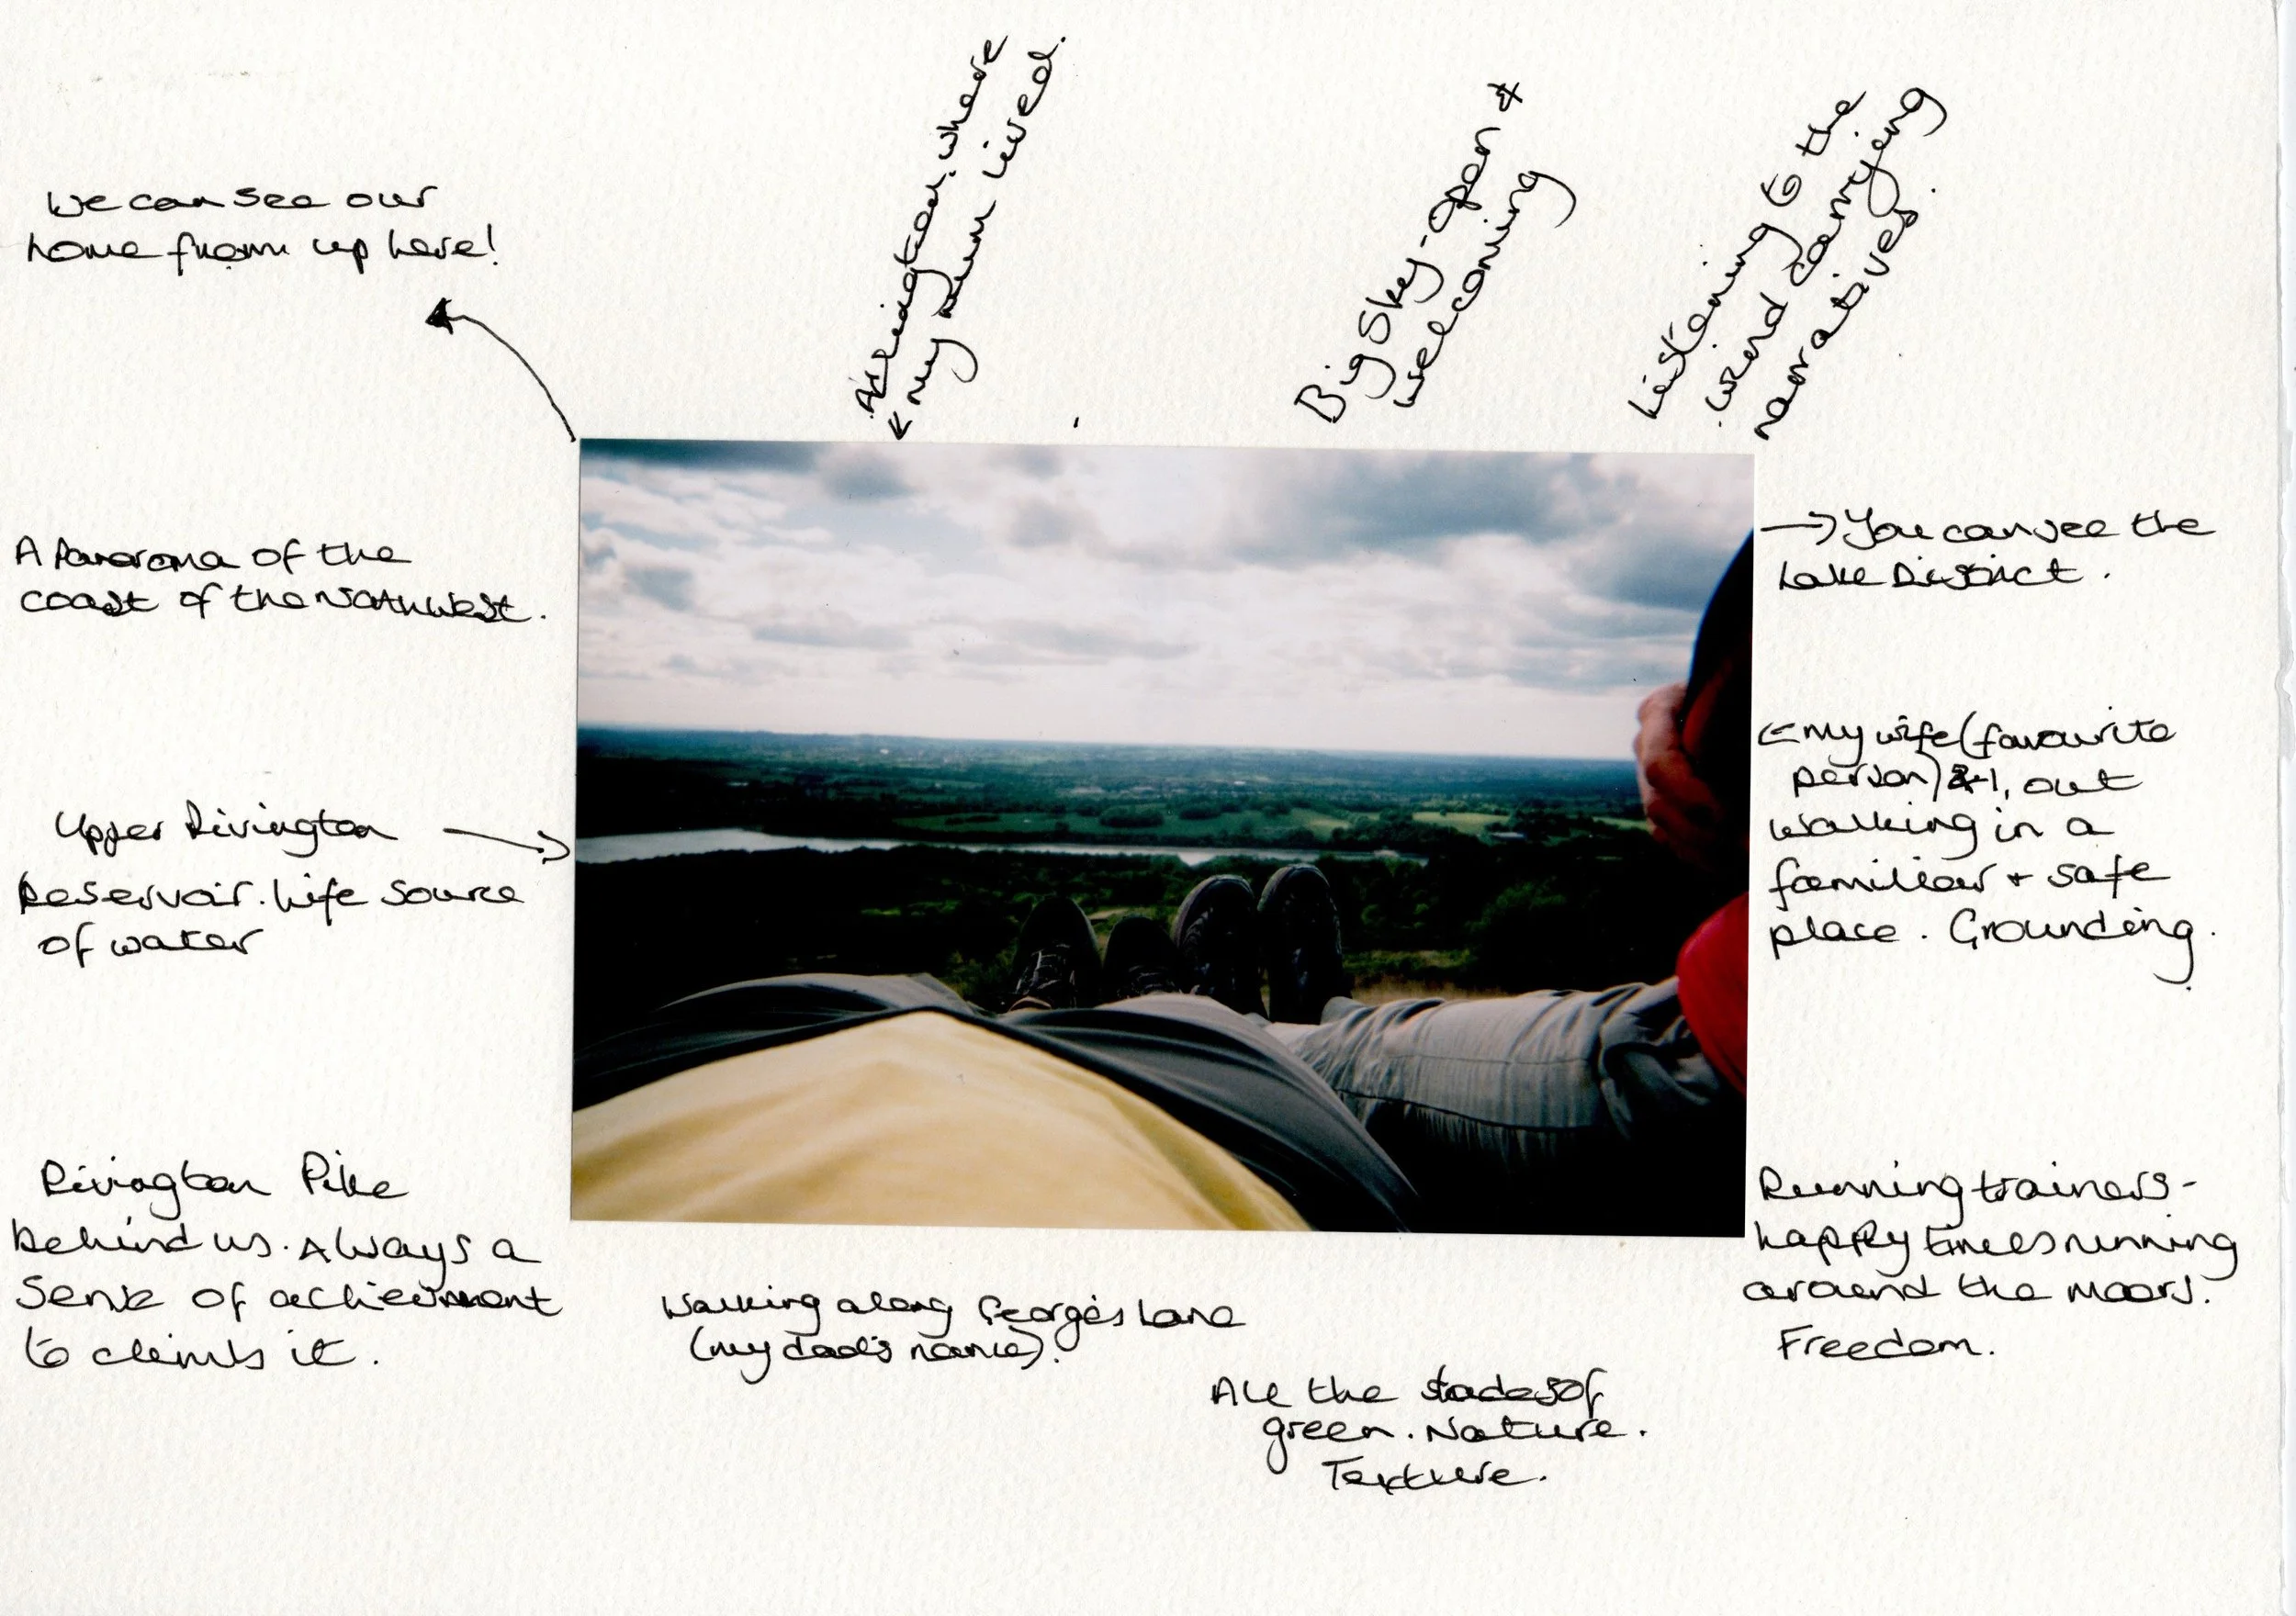 We can see our
home from up here!
Adlington, where
my mum lived.
Big Sky - open &
welcoming
Listening to the
wind carrying
narratives.
A Panorama of the
coast of the Northwest.
→ You can see the
Lake District.
Upper Rivington
Reservoir. Life source
of water
← My wife (favourite
person) & I, out
walking in a
familiar + safe
place. Grounding.
Rivington Pike
behind us. Always a
Sense of achievement
to climb it.
Walking along George's Lane
(my dad's name).
All the shades of
green. Nature.
Texture.
Running trainers -
happy times running
around the moors.
Freedom.